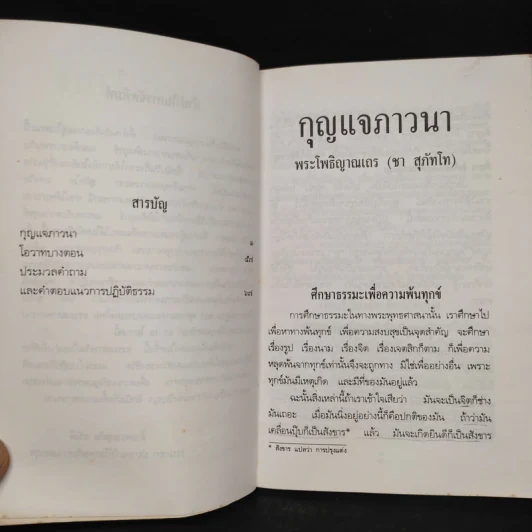 สารบัญ
กุญแจภาวนา ๑
โอวาทบางตอน ๕๗
ประมวลคำถาม
และคำตอบแนวการปฏิบัติธรรม ๖๗
กุญแจภาวนา
พระโพธิญาณเถร (ชา สุภัทโท)
ศึกษาธรรมะเพื่อความพ้นทุกข์
การศึกษาธรรมะในทางพระพุทธศาสนานั้น เราศึกษาไป
เพื่อหาทางพ้นทุกข์ เพื่อความสงบสุขเป็นจุดสำคัญ จะศึกษา
เรื่องรูป เรื่องนาม เรื่องจิต เรื่องเจตสิกก็ตาม ก็เพื่อความ
หลุดพ้นจากทุกข์เท่านั้นจึงจะถูกทาง มิใช่เพื่ออย่างอื่น เพราะ
ทุกข์มันมีเหตุเกิด และมีที่ของมันอยู่แล้ว
ฉะนั้นสิ่งเหล่านี้ถ้าเราเข้าใจเสียว่า มันจะเป็นจิตก็ช่าง
มันเถอะ เมื่อมันนิ่งอยู่อย่างนี้ก็คือปกติของมัน ถ้าว่ามัน
เคลื่อนปุ๊บก็เป็นสังขาร* แล้ว มันจะเกิดยินดีก็เป็นสังขาร
* สังขาร แปลว่า การปรุงแต่ง